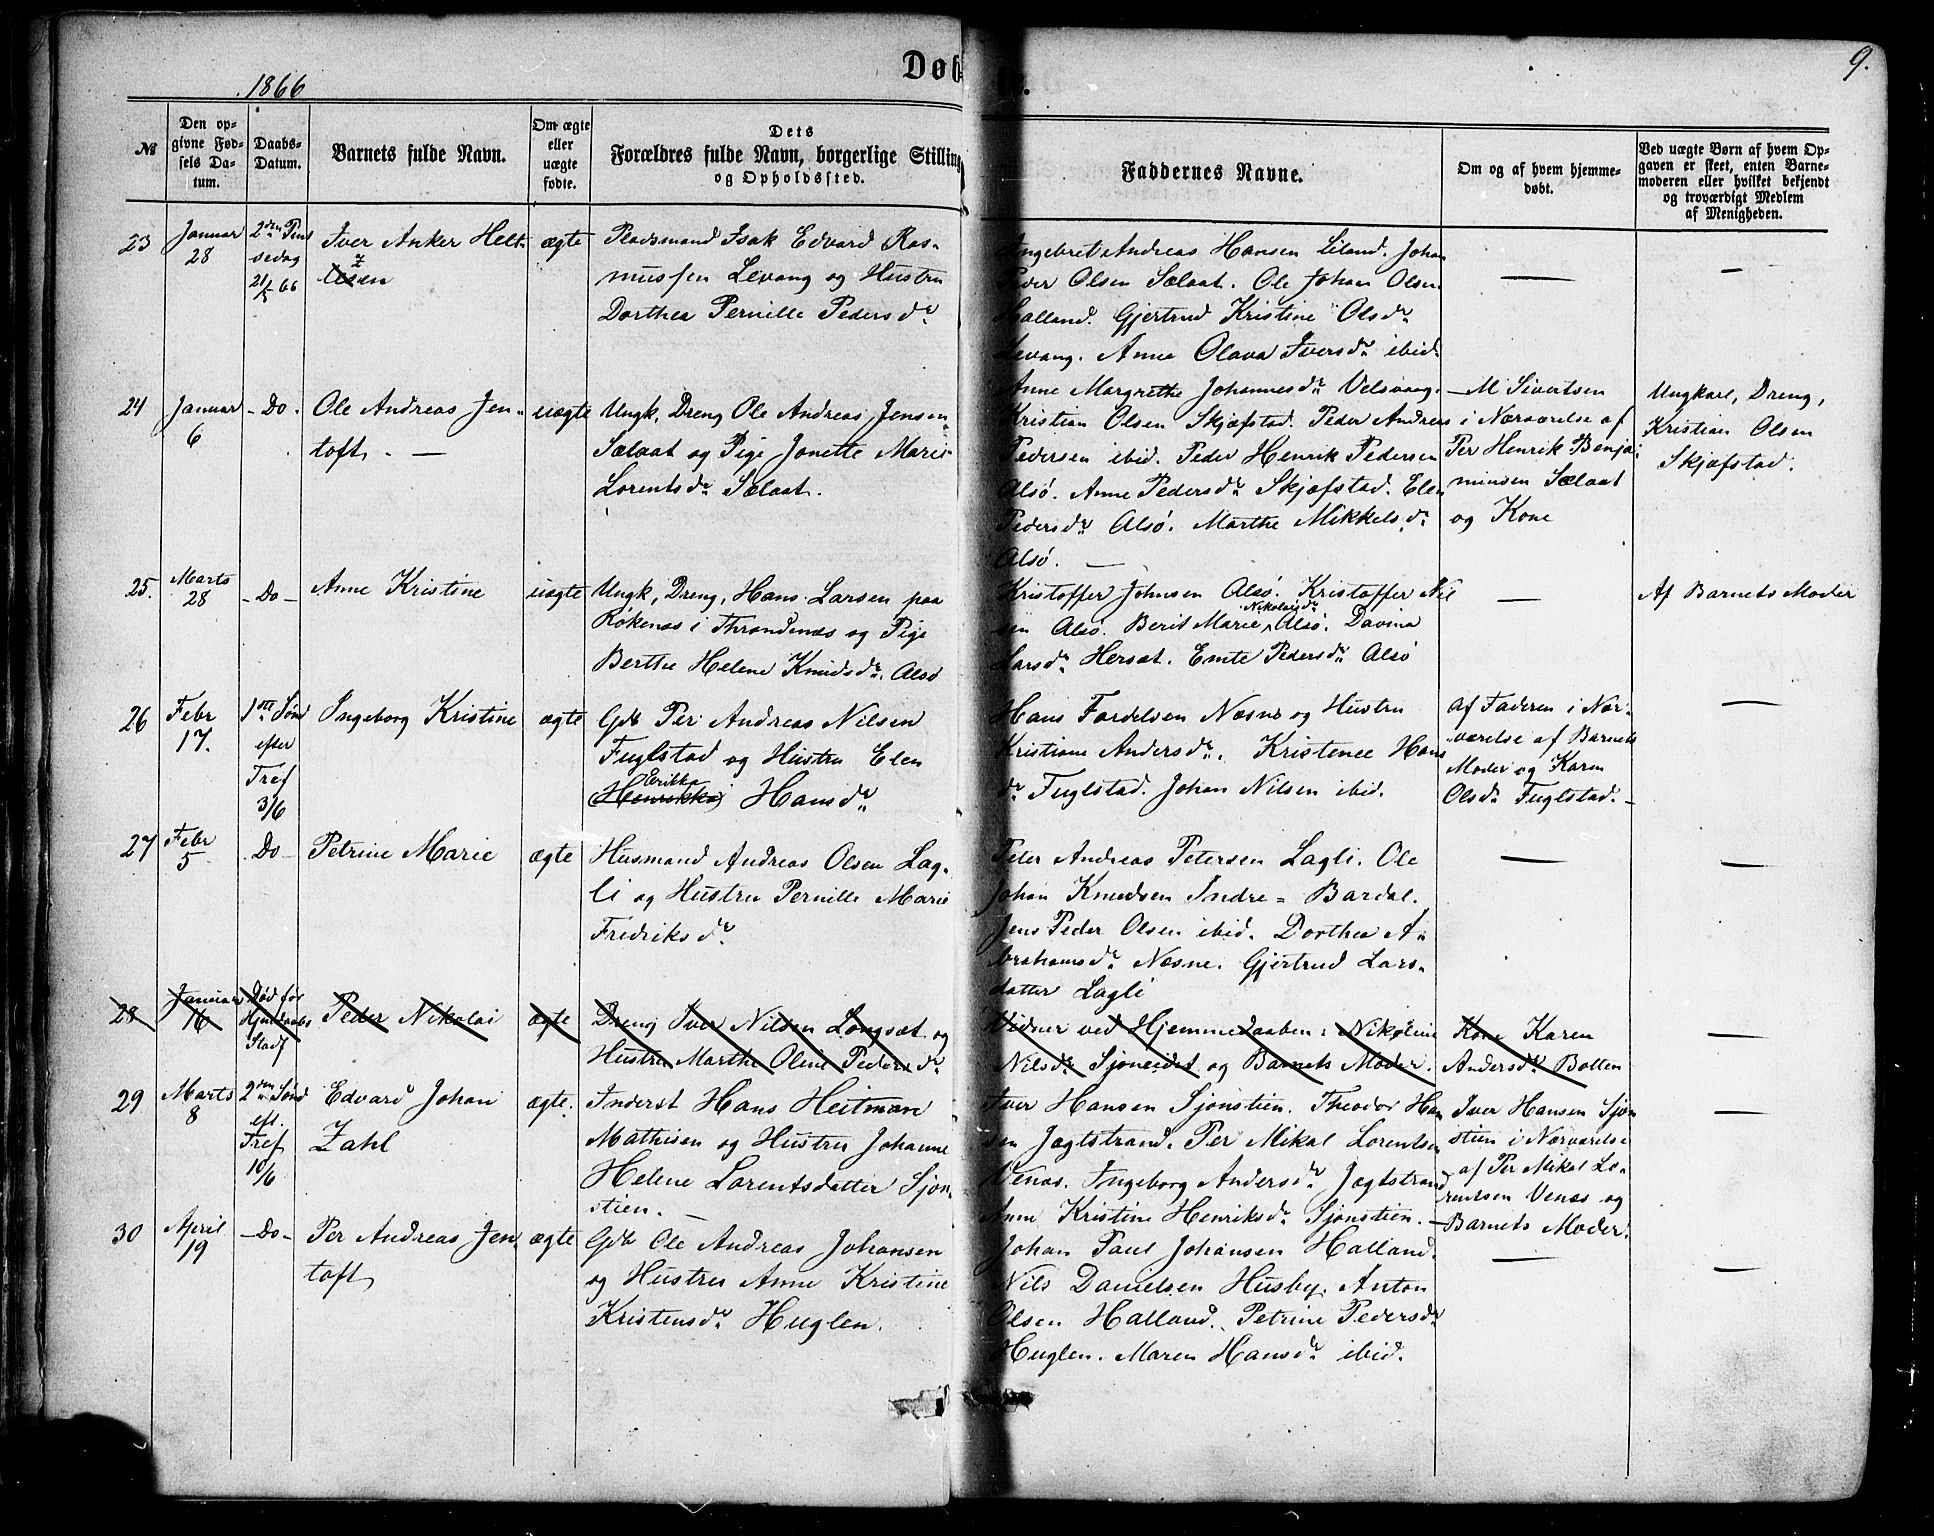 1866
Døb
9.
№
Den opgivne Fødsels Datum.
Daabs-Datum.
Barnets fulde Navn.
Om ægte eller uægte fødte.
Dets Forældres fulde Navn, borgerlige Stilling og Opholdssted.
Faddernes Navne.
Om og af hvem hjemmedøbt.
Ved uægte Børn af hvem Opgaven er skeet, enten Barnemoderen eller hvilket bekjendt og troværdigt Medlem af Menigheden.
23
Januar
28
2den Pint
sedag
21/5 66
Iver Anker Helt
zen
ægte
Pladsmand Isak Edvard Ras-
mussen Levang og Hustru
Dorthea Pernille Pedersdr
Ingebret Andreas Hansen Leland. Johan
Peder Olsen Sælaat. Ole Johan Olsen
Halland. Gjertrud Kristine Olsdr
Levang. Anne Olava Iversdr ibid.
—
—
24
Januar
6
- Do -
Ole Andreas Jen-
toft. —
uægte
Ungk, Dreng Ole Andreas Jensen
Sælaat og Pige Jonette Marie
Lorentsdr Sælaat.
Anne Margrethe Johannesdr Velsvaag.
Kristian Olsen Skjæfstad. Peder Andreas
Pedersen ibid. Peder Henrik Pedersen
Alsø. Anne Pedersdr Skjæfstad. Elen
Pedersdr Alsø. Marthe Mikkelsdr
Alsø. —
- M Sivertsen
i Nærværelse af
Per Henrik Benja-
minsen Sælaat
og Kone
Ungkarl, Dreng,
Kristian Olsen
Skjæfstad.
25.
Marts
28
- Do -
Anne Kristine
uægte
Ungk, Dreng, Hans Larsen paa
Rökenæs i Throndenæs og Pige
Berthe Helene Knudsdr. Alsø
Kristoffer Johnsen Alsø. Kristoffer Niel
sen Alsø. Berit Marie Nikolaisdr Alsø. Davina
Larsdr Hersæt. Emte Pedersdr Alsø
—
Af Barnets Moder
26
Febr
17.
1ste Sönd
efter
Tref
3/6
Ingeborg Kristine
ægte
Gdb Per Andreas Nilsen
Fuglstad og Hustru Elen
Erikka
(Henrikka) Hansdr
Hans Fordelsen Næsne og Hustru
Kristiane Andersdr. Kristence Hans
dr Fuglstad. Johan Nilsen ibid.
Af Faderen i Nær-
værelse af Barnets
Moder og Karen
Olsdr Fuglstad. -
—
27
Febr
5
Do -
Petrine Marie
ægte
Husmand Andreas Olsen Lag-
li og Hustru Pernille Marie
Fredriksdr
Peter Andreas Petersen Lagli. Ole
Johan Knudsen Indre = Bardal.
Jens Peder Olsen ibid. Dorthea A-
brahamsdr Næsne. Gjertrud Lars-
datter Lagli
—
—
28
Januar
16
Død før
Hjmdaabs
Stadf
Peder Nikolai
ægte
Dreng Iver Nilsen Longsæt og
Hustru Marthe Oline Pedersdr
Vidner ved Hjemmedaaben: Nikoline
Nilsdr Sjoneidet og Barnets Moder.
Kone Karen
Andersdr Botten
—
29
Marts
8
2den Sönd
eft.
Tref
10/6
Edvard Johan
Zahl
ægte.
Inderst Hans Heitman
Mathisen og Hustru Johanne
Helene Lorentsdatter Sjon
stien. —
Iver Hansen Sjonstien. Theodor Han
sen Jægtstrand. Per Mikal Lorentsen
Venæs. Ingeborg Andersdr Jægtstrand
Anne Kristine Henriksdr Sjonstien. -
Iver Hansen Sjon
stien i Nærværelse
af Per Mikal Lo-
rentsen Venæs og
Barnets Moder.
—
30
April
19
- Do -
Per Andreas Jen
toft
ægte
Gdb Ole Andreas Johansen
og Hustru Anne Kristine
Kristensdr Huglen.
Johan Paul Johansen Halland.
Nils Danielsen Husby. Anton
Olsen Halland. Petrine Pedersdr
Huglen. Maren Hansdr ibid.
—
—